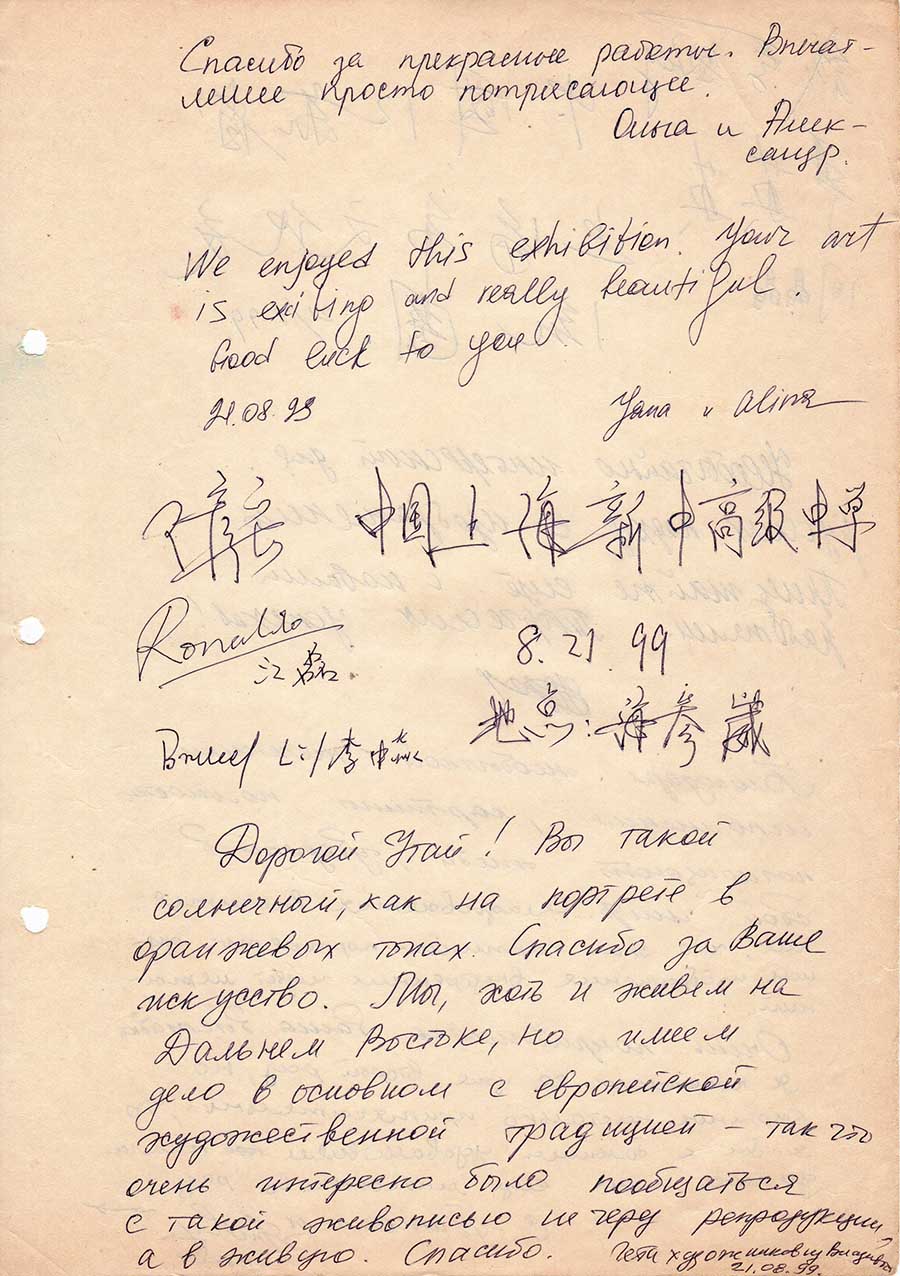 Спасибо за прекрасные работы. Впечат-
ление просто потрясающее.
Ольга и Алек-
сандр.
We enjoyed this exhibition. Your art
is exiting and really beautiful.
Good luck to you
21.08.99
Yana и Alina
中国上海新中高级中学
Ronaldo
江磊
8. 21. 99
地点: 海参崴
Li 李中
Дорогой Утай! Вы такой
солнечный, как на портрете в
оранжевых тонах. Спасибо за Ваше
искусство. Мы, хоть и живем на
Дальнем Востоке, но имеем
дело в основном с европейской
художественной традицией – так что
очень интересно было пообщаться
с такой живописью не через репродукции,
а в живую. Спасибо.
21.08.99.